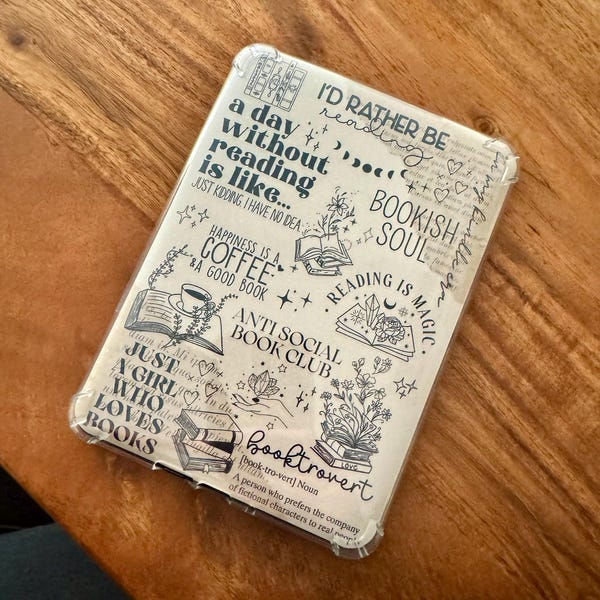 I'D RATHER BE
reading
a day
without
reading
is like...
JUST KIDDING, I HAVE NO IDEA
BOOKISH
SOUL
HAPPINESS IS A
COFFEE
& A GOOD BOOK
READING IS MAGIC
ANTI SOCIAL
BOOK CLUB
JUST
A GIRL
WHO
LOVES
BOOKS
LOVE
booktrovert
[book-tro-vert] Noun
A person who prefers the company
of fictional characters to real people